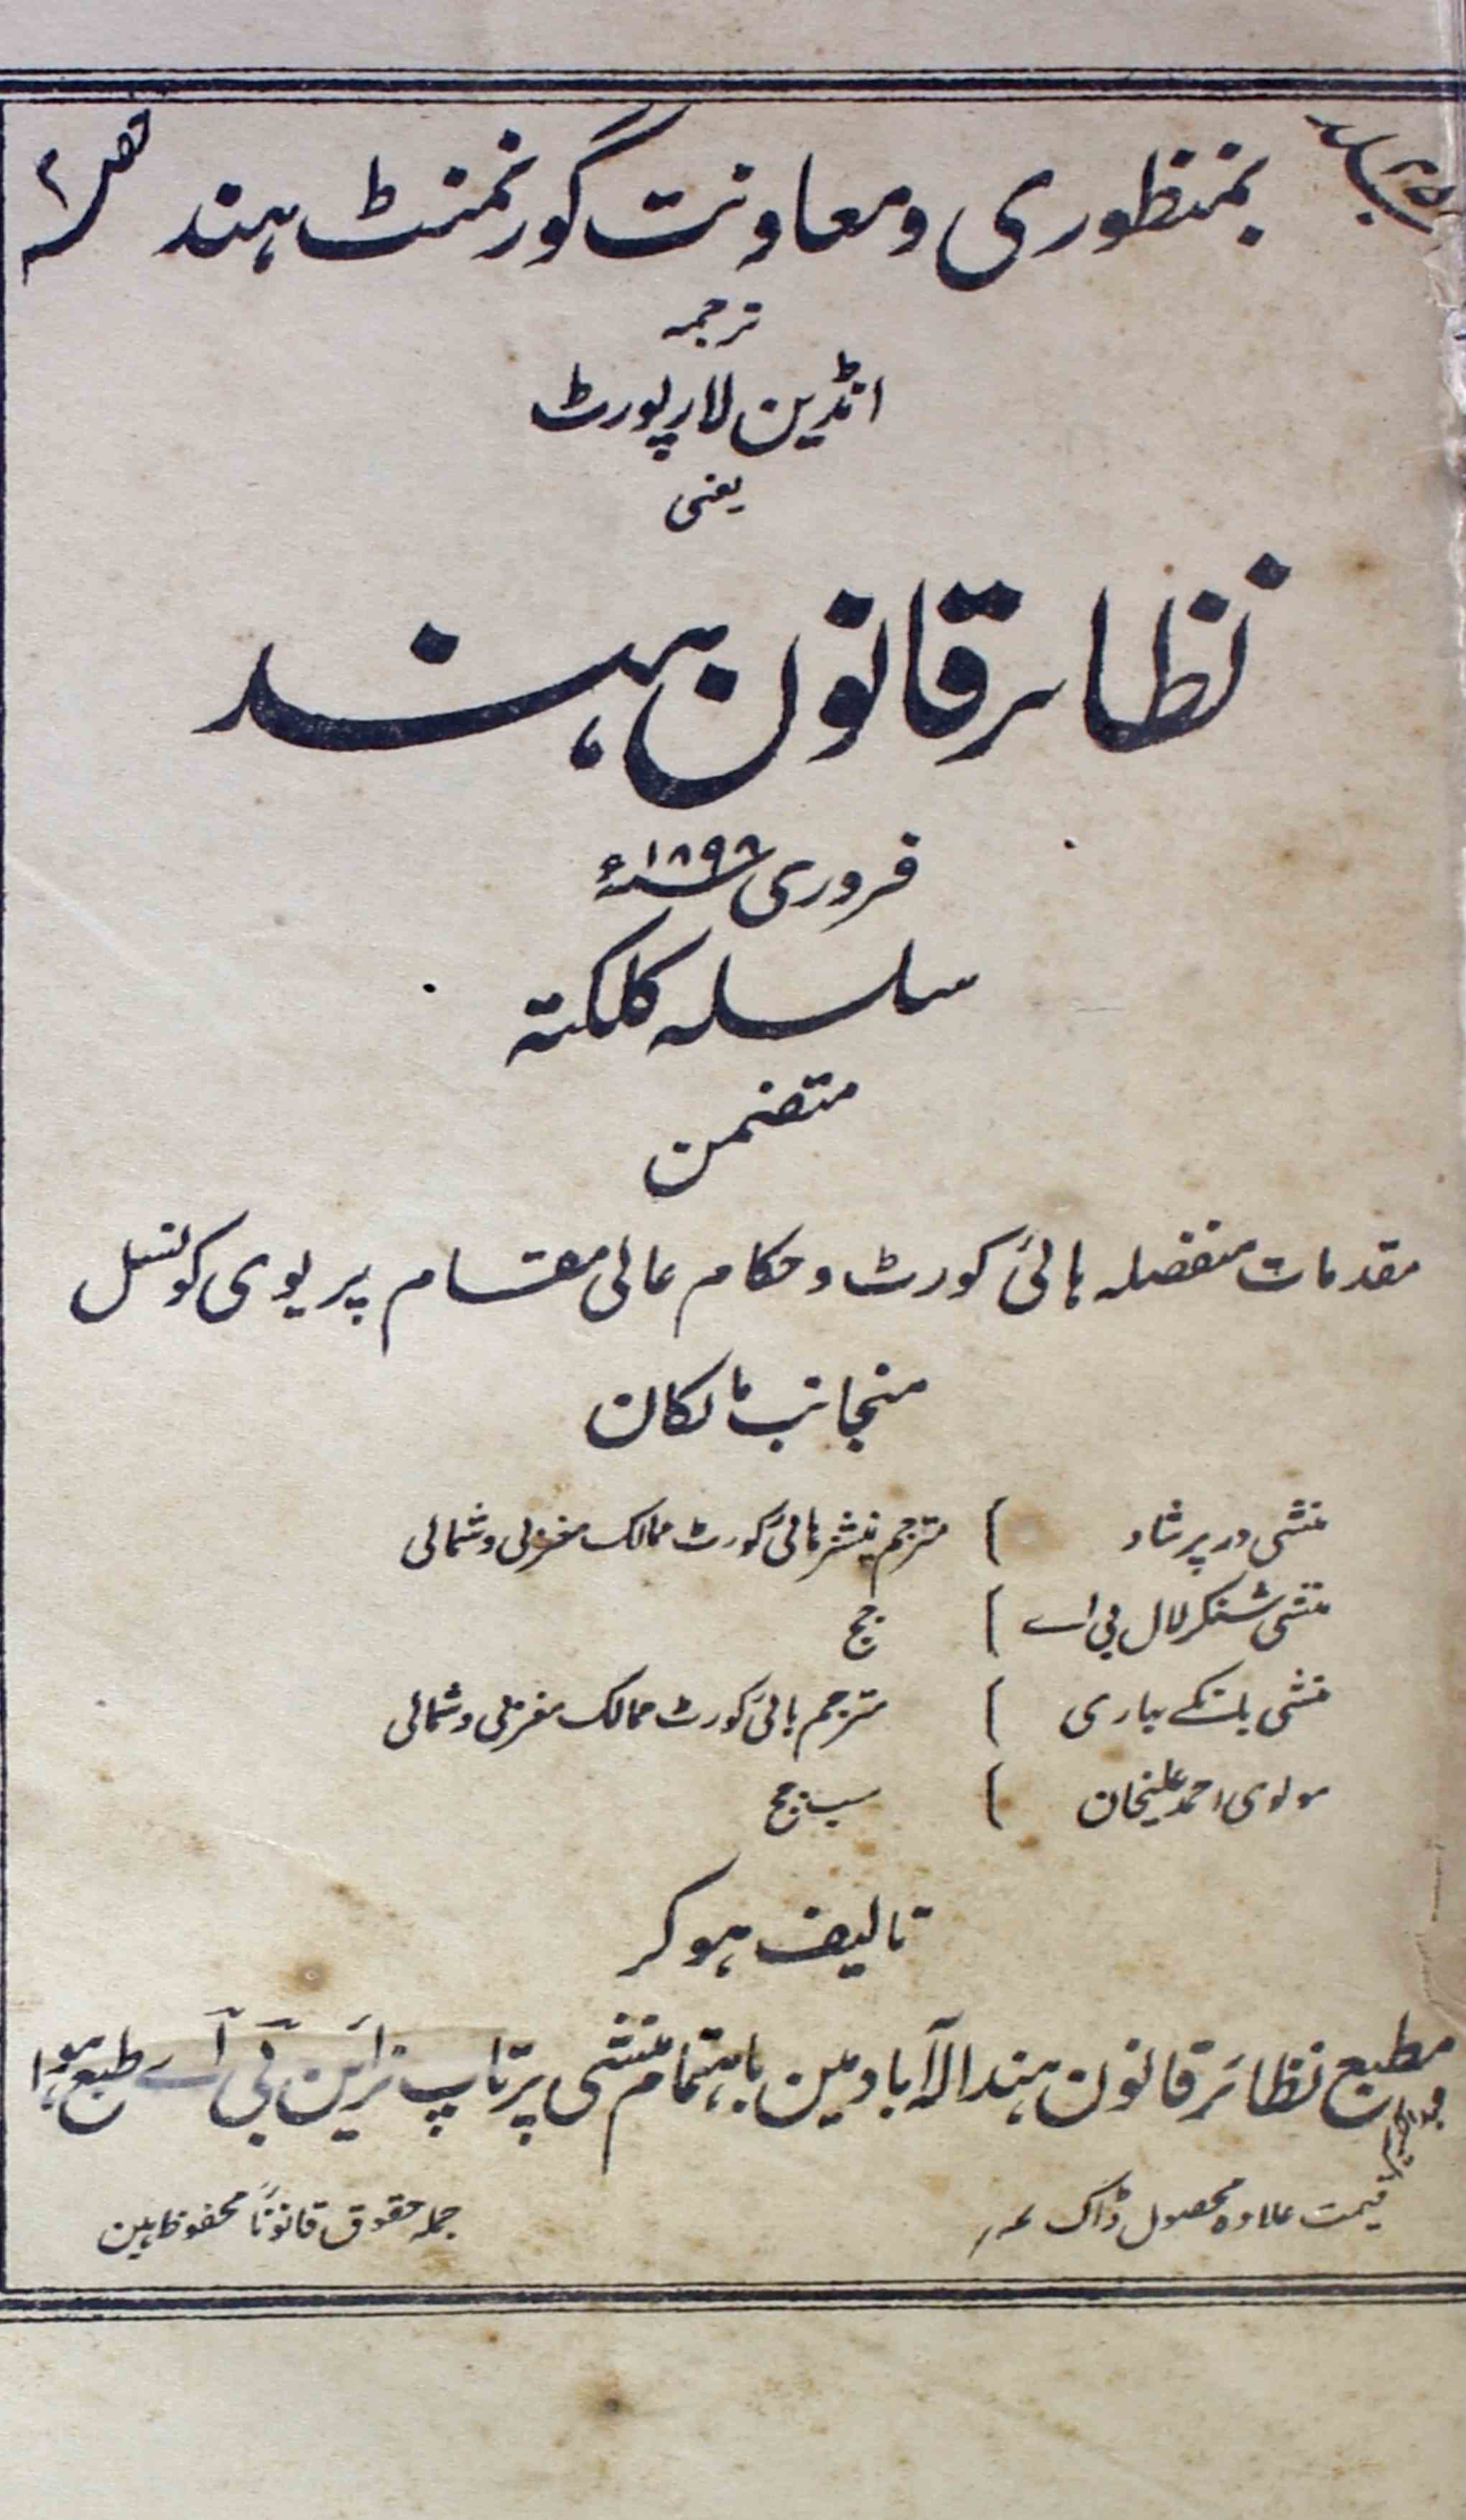 جلد ۲۵ بمنظوری و معاونت گورنمنٹ ہند حصہ ۲
ترجمہ
انڈین لا رپورٹ
یعنی
نظائر قانون ہند
فروری ۱۸۹۸ء
سلسلہ کلکتہ
متضمن
مقدمات منفصلہ ہائی کورٹ و حکام عالی مقام پریوی کونسل
منجانب مالکان
منشی در پرشاد ) مترجم پنشنر ہائی کورٹ ممالک مغربی و شمالی
منشی شنکر لال بی اے ) جج
منشی بانکے بہاری ) مترجم ہائی کورٹ ممالک مغربی و شمالی
مولوی احمد علیخان ) سب جج
تالیف ہو کر
مطبع نظائر قانون ہند الہ آباد مین باہتمام منشی پرتاپ نراین بی اے طبع ہوا
قیمت علاوہ محصول ڈاک جملہ حقوق قانوناً محفوظ ہین